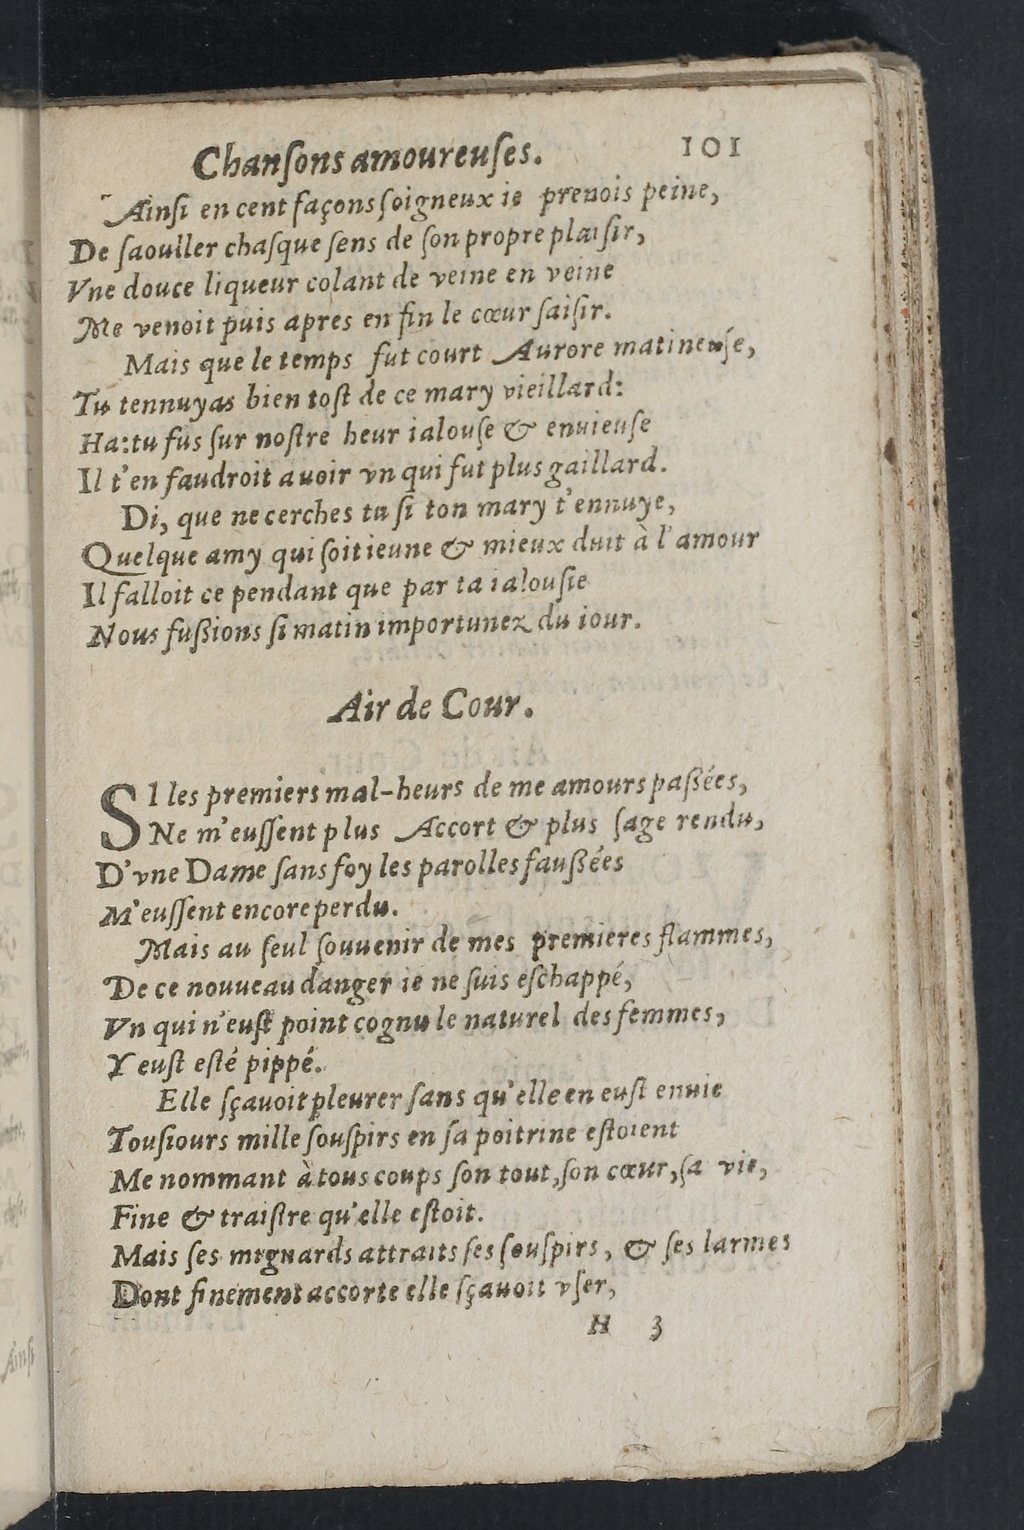 Chanſons amoureuſes. 101
Ainſi en cent façons ſoigneux ie prenois peine,
De ſaouller chaſque ſens de ſon propre plaiſir,
Vne douce liqueur colant de veine en veine
Me venoit puis apres en fin le cœur ſaiſir.
Mais que le temps fut court Aurore matineuſe,
Tu tennuyas bien toſt de ce mary vieillard:
Ha: tu fus ſur noſtre heur ialouſe & enuieuſe
Il t'en faudroit auoir vn qui fut plus gaillard.
Di, que ne cerches tu ſi ton mary t'ennuye,
Quelque amy qui ſoit ieune & mieux duit à l'amour
Il falloit ce pendant que par ta ialouſie
Nous fußions ſi matin importunez du iour.
Air de Cour.
SI les premiers mal-heurs de me amours paßées,
Ne m'euſſent plus Accort & plus ſage rendu,
D'vne Dame ſans foy les parolles faußées
M'euſſent encore perdu.
Mais au ſeul ſouuenir de mes premieres flammes,
De ce nouueau danger ie ne ſuis eſchappé,
Vn qui n'euſt point cognu le naturel des femmes,
Y euſt eſté pippé.
Elle ſçauoit pleurer ſans qu'elle en euſt enuie
Touſiours mille ſouſpirs en ſa poitrine eſtoient
Me nommant à tous coups ſon tout, ſon cœur, ſa vie,
Fine & traiſtre qu'elle eſtoit.
Mais ſes mignards attraits ſes ſouſpirs, & ſes larmes
Dont finement accorte elle ſçauoit vſer,
H 3
Ainſi